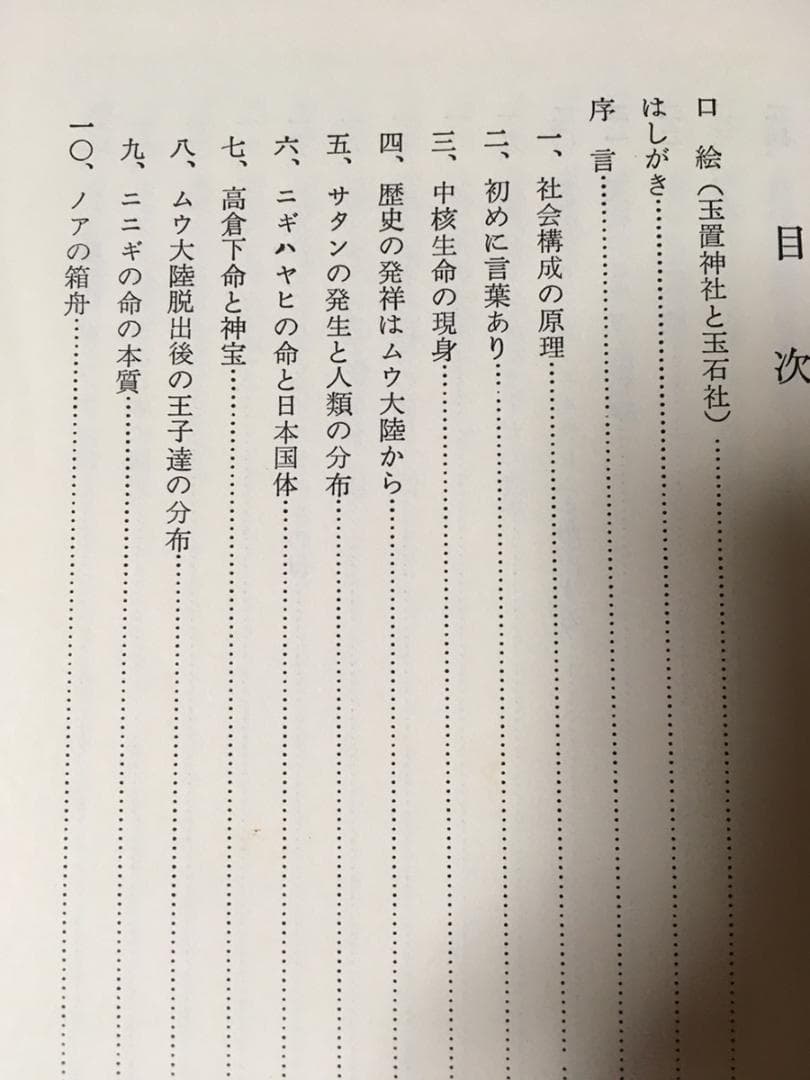 目次
口絵（玉置神社と玉石社）…………
はしがき…………
序言…………
一、社会構成の原理…………
二、初めに言葉あり…………
三、中核生命の現身…………
四、歴史の発祥はムウ大陸から…………
五、サタンの発生と人類の分布…………
六、ニギハヤヒの命と日本国体…………
七、高倉下命と神宝…………
八、ムウ大陸脱出後の王子達の分布…………
九、ニニギの命の本質…………
一〇、ノアの箱舟…………